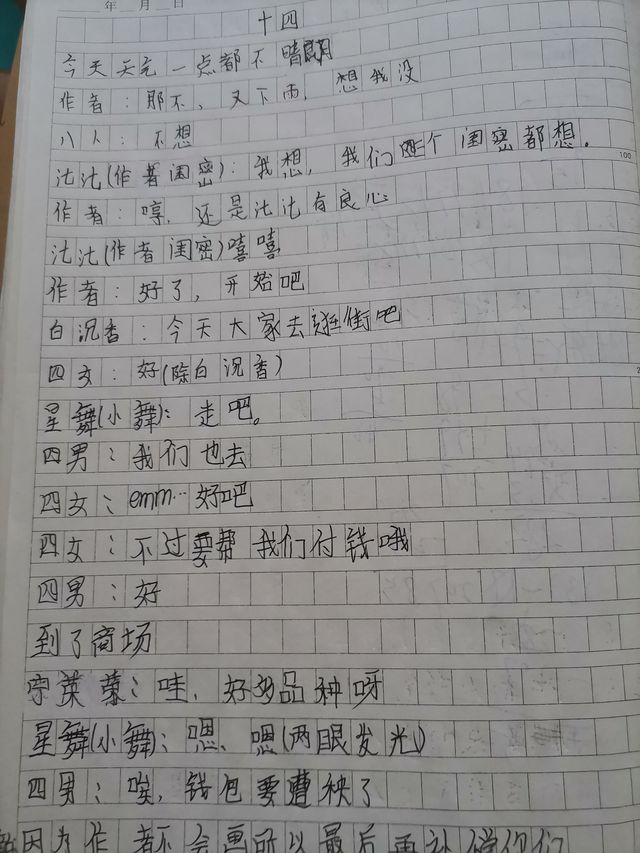 年 月 日
十四
今天天气一点都不晴朗
作者：那不，又下雨，想我没
八人：不想
沈沈(作者闺密)：我想，我们两个闺密都想。
作者：哼，还是沈沈有良心
沈沈(作者闺密)嘻嘻
作者：好了，开始吧
白沉香：今天大家去逛街吧
四女：好(除白沉香)
星舞(小舞)：走吧。
四男：我们也去
四女：emm…好吧
四女：不过要帮我们付钱哦
四男：好
到了商场
宁荣荣：哇，好多品种呀
星舞(小舞)：嗯、嗯(两眼发光)
四男：唉，钱包要遭秧了
因为作者不会画所以最后再补偿你们
100